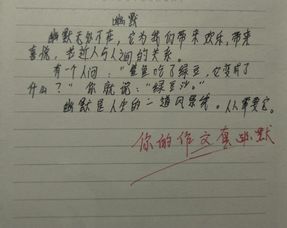 幽默
幽默无处不在,它为我们带来欢乐,带来
喜悦,拉近人与人之间的关系。
有个人问:“鲨鱼吃了绿豆,它变成了
什么?”你就说:“绿豆沙。”
幽默是人生的一道风景线。人人需要它。
你的作文真幽默